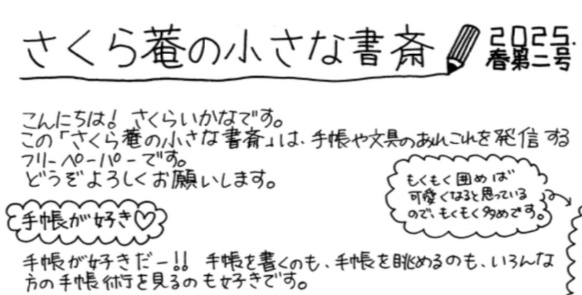 さくら菴の小さな書斎
2025.
春第二号
こんにちは！さくらいかなです。
この「さくら菴の小さな書斎」は、手帳や文具のあれこれを発信する
フリーペーパーです。
どうぞよろしくお願いします。
もくもく囲めば
可愛くなると思っている
ので、もくもく多めです。
手帳が好き♡
手帳が好きだー!! 手帳を書くのも、手帳を眺めるのも、いろんな
方の手帳術を見るのも好きです。